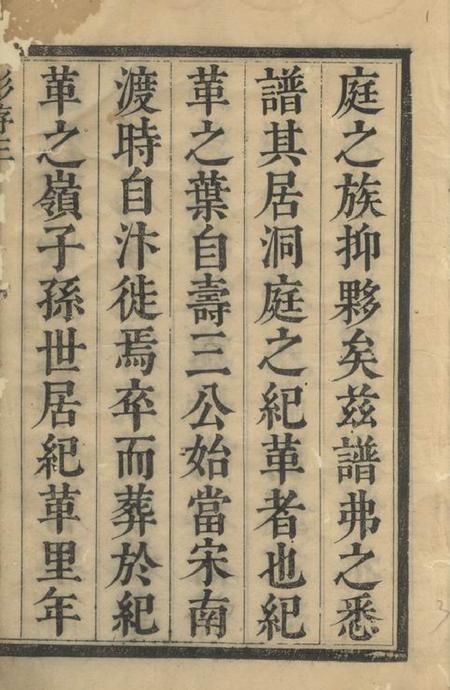 庭之族抑夥矣茲譜弗之悉
譜其居洞庭之紀革者也紀
革之葉自壽三公始當宋南
渡時自汴徙焉卒而葬於紀
革之嶺子孫世居紀革里年